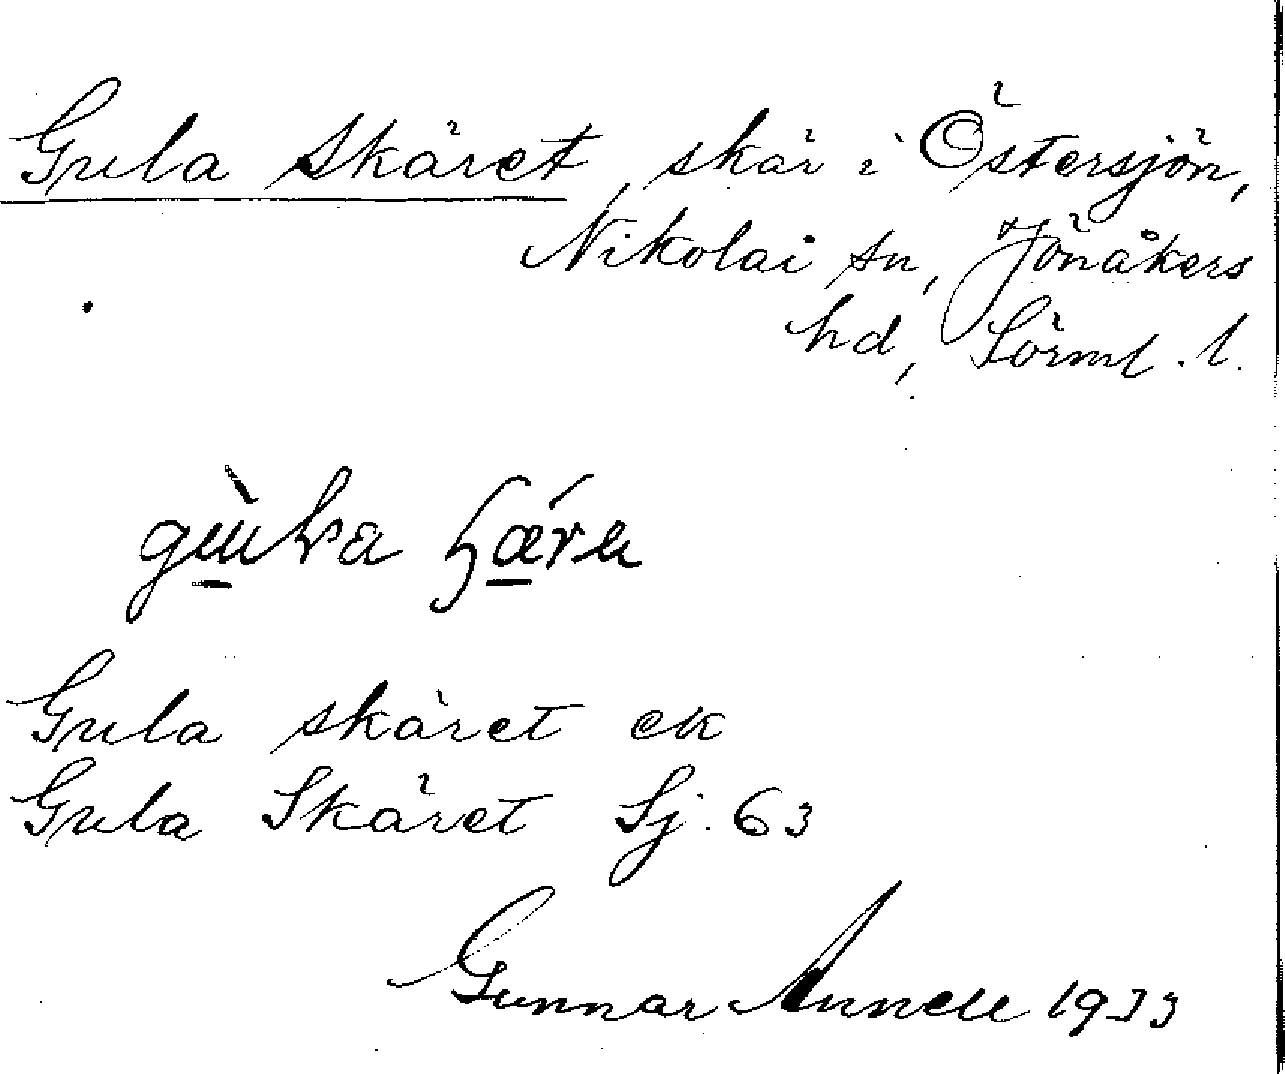 Gula skäret, skär i Östersjön,
Nikolai sn, Jönåkers
hd, Sörml. l.
Gula skäret ek
Gula Skäret Sj. 63
Gunnar Annell 1933